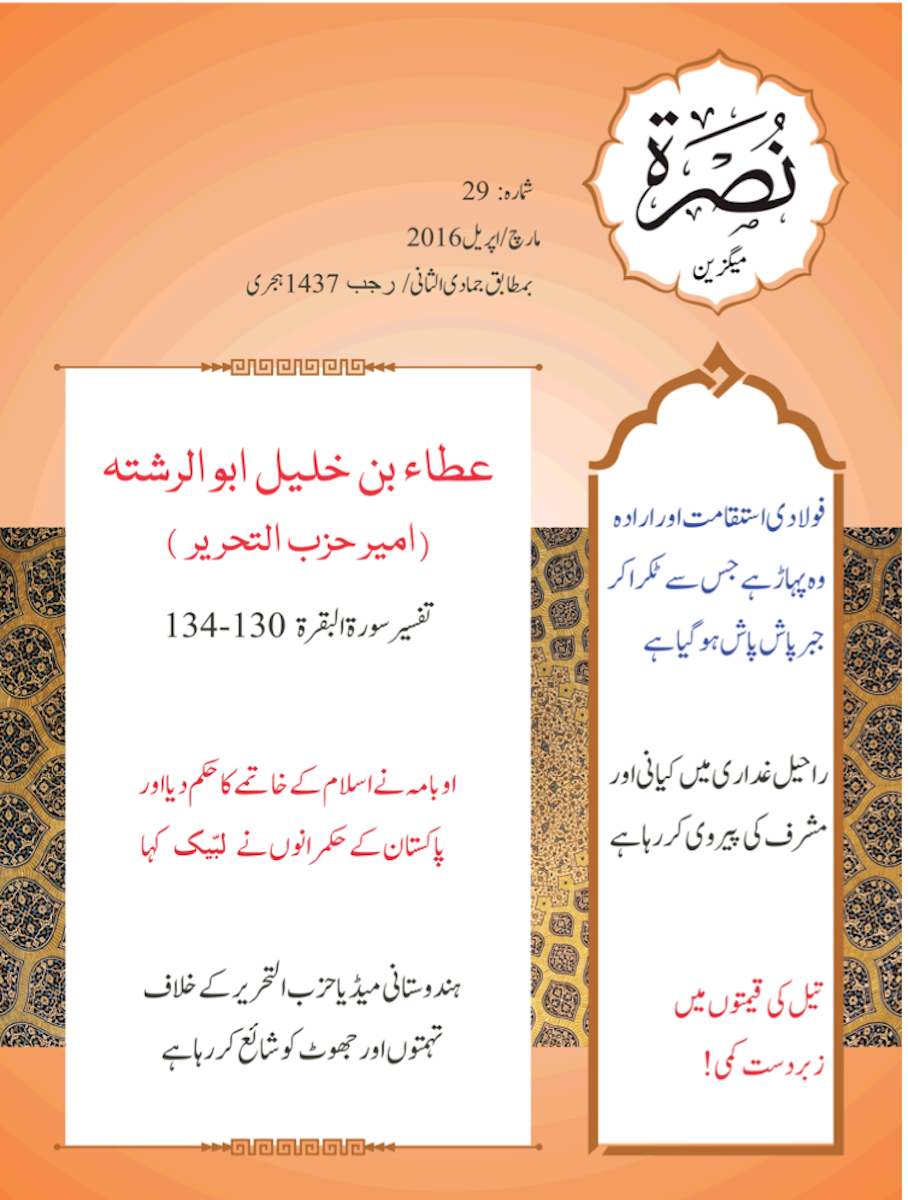 نُصْرَة
میگزین
شمارہ: 29
مارچ/اپریل2016
بمطابق جمادی الثانی/ رجب 1437 ہجری
فولادی استقامت اور ارادہ
وہ پہاڑ ہے جس سے ٹکرا کر
جبر پاش پاش ہو گیا ہے
راحیل غداری میں کیانی اور
مشرف کی پیروی کر رہا ہے
تیل کی قیمتوں میں
زبردست کمی!
عطاء بن خلیل ابو الرشتہ
(امیر حزب التحریر )
تفسیر سورۃ البقرۃ 130-134
اوبامہ نے اسلام کے خاتمے کا حکم دیا اور
پاکستان کے حکمرانوں نے لبّیک کہا
ہندوستانی میڈیا حزب التحریر کے خلاف
تہمتوں اور جھوٹ کو شائع کر رہا ہے